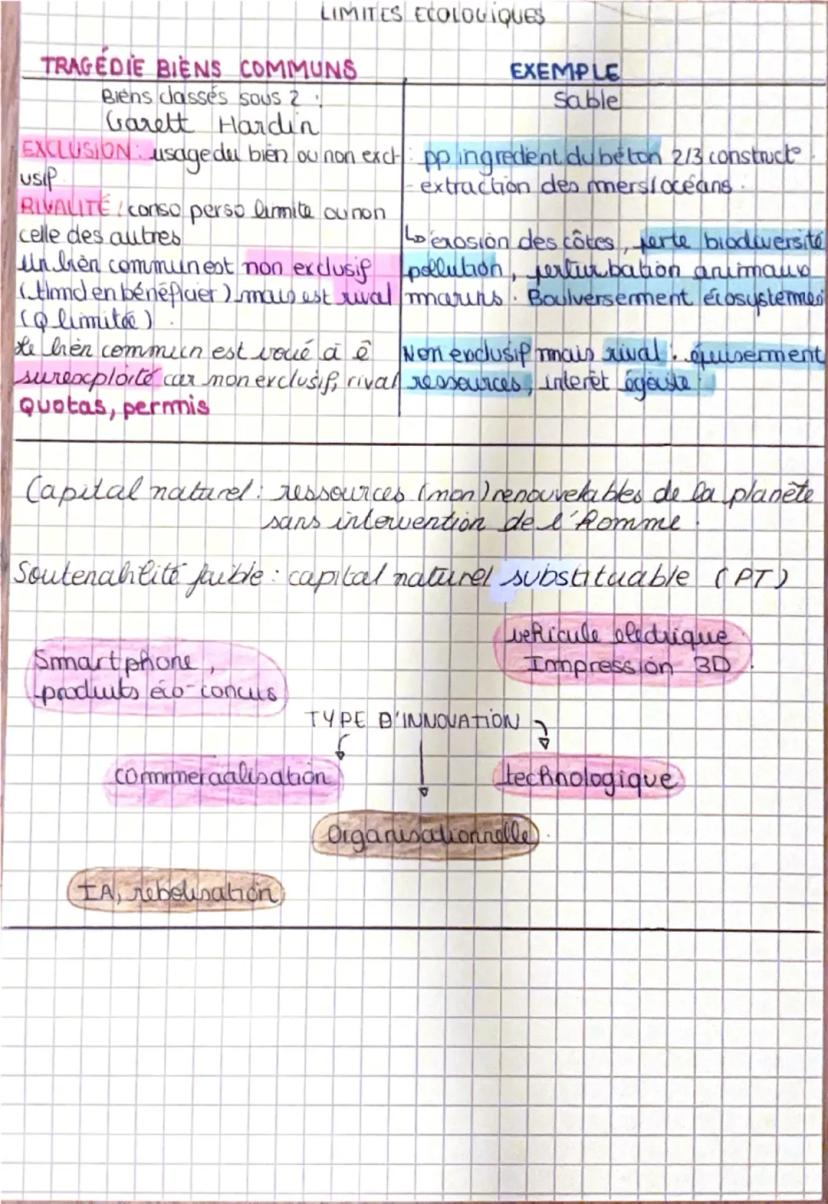 LIMITES ECOLOGIQUES
TRAGÉDIE BIENS COMMUNS
Biens classés sous 2 :
Garett Hardin
EXCLUSION : usage du bien ou non excl
usif
RIVALITÉ : conso perso limite ou non
celle des autres
Un bien commun est non exclusif
(tlmd en bénéficier) mais est rival
(Q limitée).
Le bien commun est voué à ê
surexploité car non exclusif, rival
Quotas, permis
EXEMPLE
Sable
: pp ingredient du béton 2/3 construct°.
- extraction des mers/océans.
↳ érosion des côtes, perte biodiversité
pollution, perturbation animaux
marins. Boulversement écosystemes
Non exclusif mais rival : épuisement
ressources, interêt égoiste :
Capital naturel : ressources (non) renouvelables de la planète
sans intervention de l'Homme.
Soutenabilité faible : capital naturel substituable (PT)
Smartphone,
produits éco-concus
vehicule electrique
Impression 3D.
TYPE D'INNOVATION
commercialisation
technologique
Organisationnelle
IA, robotisation